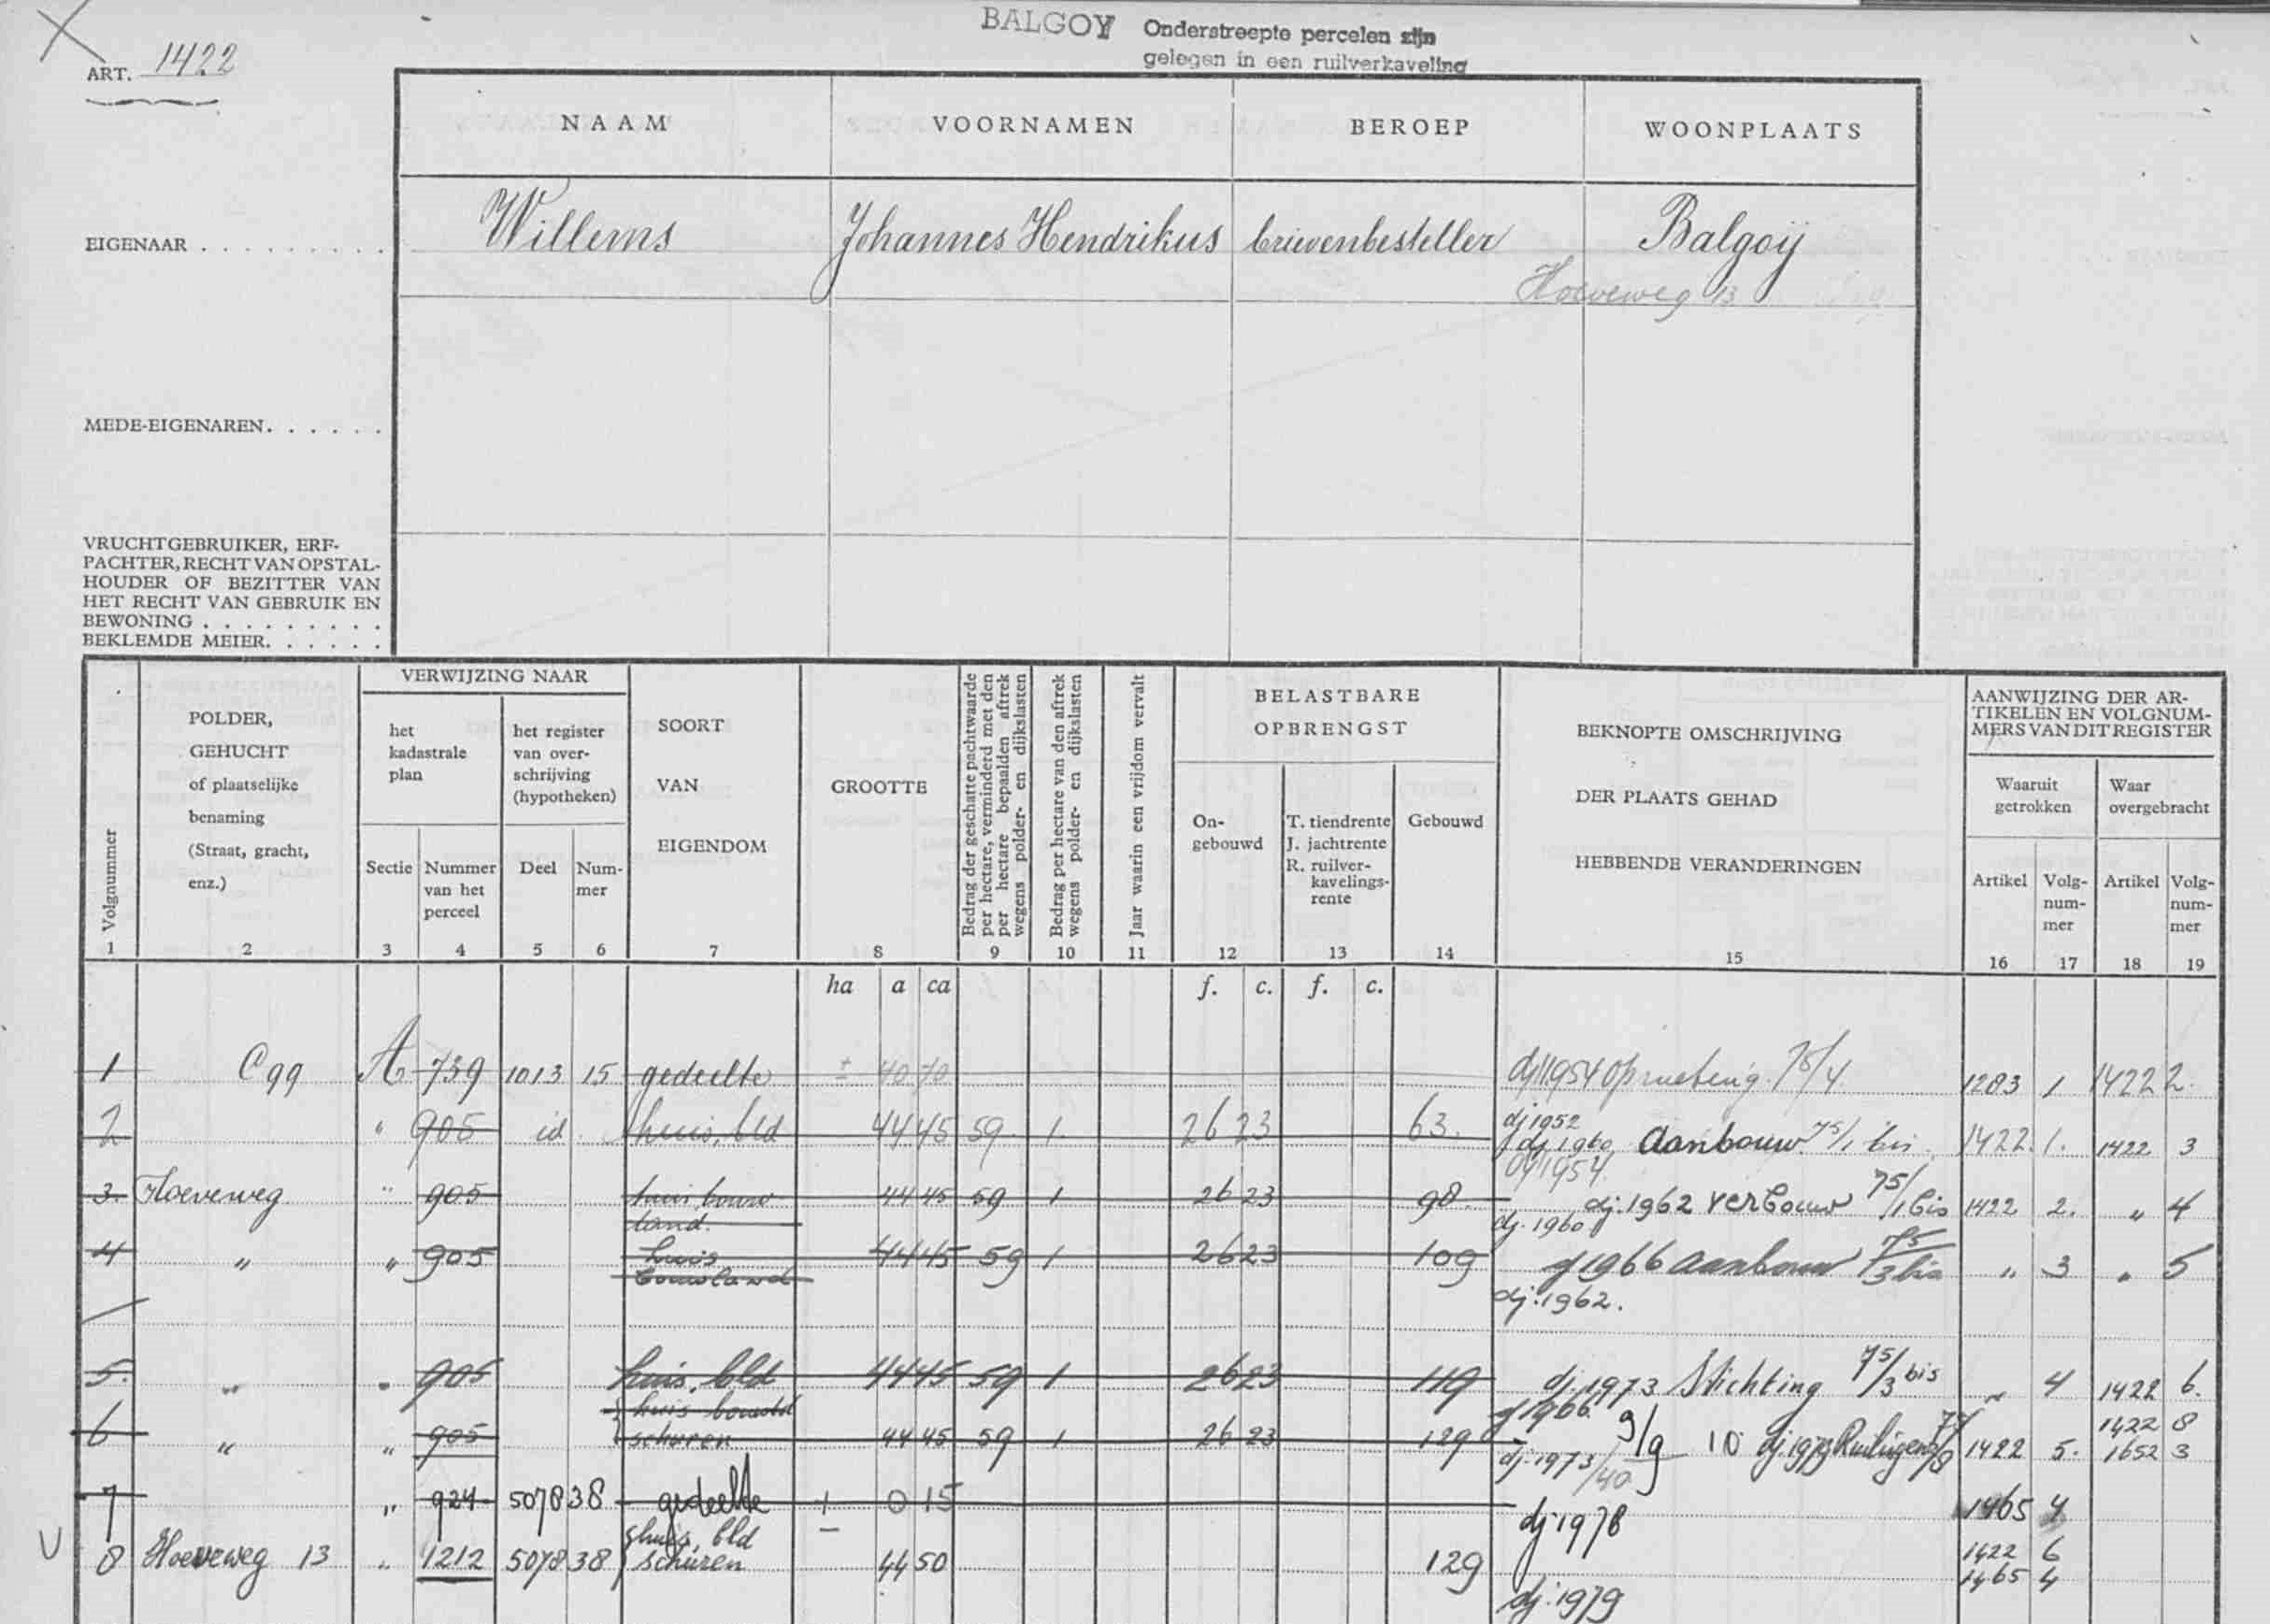 BALGOY Onderstreepte percelen zijn
gelegen in een ruilverkaveling
ART. 1422
NAAM VOORNAMEN BEROEP WOONPLAATS
EIGENAAR . . . . . . . . . Willems Johannes Hendrikus brievenbesteller Balgoij
Hoeveweg 13
MEDE-EIGENAREN. . . . . .
VRUCHTGEBRUIKER, ERF-
PACHTER, RECHT VAN OPSTAL-
HOUDER OF BEZITTER VAN
HET RECHT VAN GEBRUIK EN
BEWONING . . . . . . . . .
BEKLEMDE MEIER. . . . . .
Volgnummer
1
POLDER,
GEHUCHT
of plaatselijke
benaming
(Straat, gracht,
enz.)
2
VERWIJZING NAAR
het
kadastrale
plan
Sectie
3
Nummer
van het
perceel
4
het register
van over-
schrijving
(hypotheken)
Deel
5
Num-
mer
6
SOORT
VAN
EIGENDOM
7
GROOTTE
8
Bedrag der geschatte pachtwaarde
per hectare, verminderd met den
per hectare bepaalden aftrek
wegens polder- en dijkslasten
9
Bedrag per hectare van den aftrek
wegens polder- en dijkslasten
10
Jaar waarin een vrijdom vervalt
11
BELASTBARE
OPBRENGST
On-
gebouwd
12
T. tiendrente
J. jachtrente
R. ruilver-
kavelings-
rente
13
Gebouwd
14
BEKNOPTE OMSCHRIJVING
DER PLAATS GEHAD
HEBBENDE VERANDERINGEN
15
AANWIJZING DER AR-
TIKELEN EN VOLGNUM-
MERS VAN DIT REGISTER
Waaruit
getrokken
Waar
overgebracht
Artikel
16
Volg-
num-
mer
17
Artikel
18
Volg-
num-
mer
19
ha a ca f. c. f. c.
1 A 739 1013 15 gedeelte ± 40 70 dj 1954 75/4 1283 1 1422 2.
2 " 905 id. huis, bld 44 45 59 1 26 23 63. dj 1952
dj 1960 Aanbouw 75/1 bis 1422 1. 1422 3
dj 1954
3. Hoeveweg " 905 huis, bouw 44 45 59 1 26 23 98. dj. 1962 verbouw 75/1 bis 1422 2. " 4
land. dj. 1960
4 " " 905 huis 44 45 59 1 26 23 109 dj 1966 aanbouw 75/3 bis " 3 " 5
bouwland dj. 1962.
5. " " 905 huis, bld 44 45 59 1 26 23 119 dj. 1973 Stichting 75/3 bis " 4 1422 6.
huis bouwld dj 1966. 1422 8
6 " " 905 schuren 44 45 59 1 26 23 129 dj. 1973 9/9 10 dj. 1979 1422 5. 1652 3
7 " 924 5078 38 gedeelte ± 0 15 dj 1978 1465 4
huis, bld 1422 6
8 Hoeveweg 13 " 1212 5078 38 schuren 44 50 129 1465 4
dj. 1979